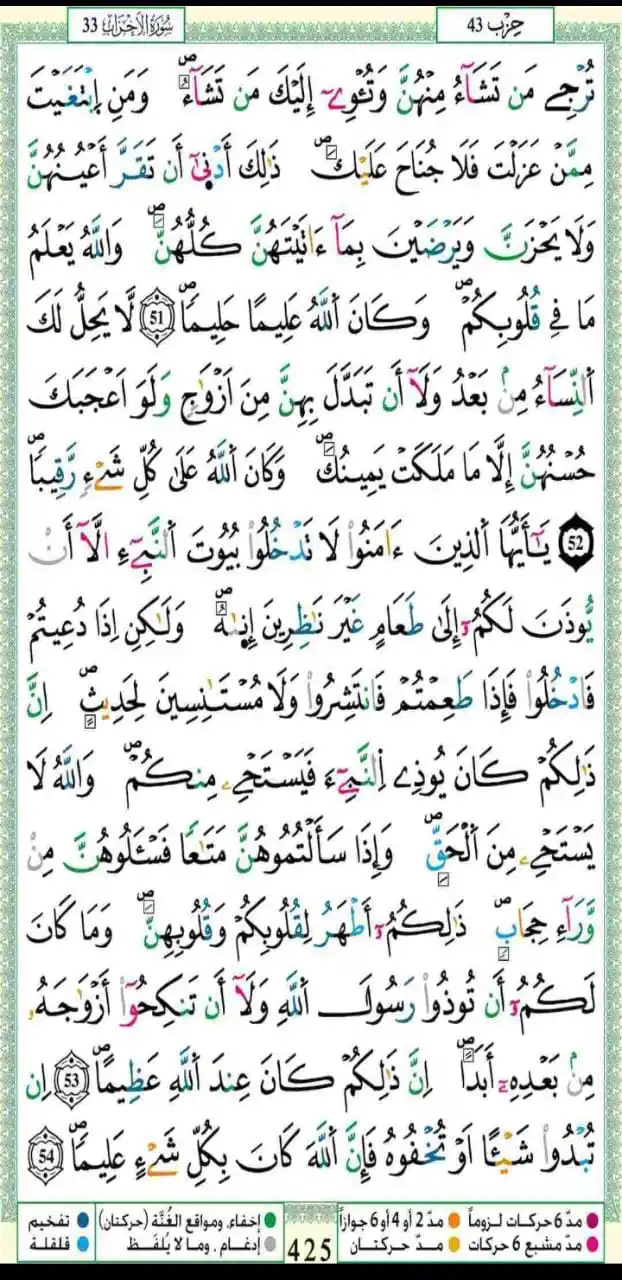 سُورَةُ الأَحْزَابِ 33
حِزْب 43
تُرْجِے مَن تَشَآءُ مِنْهُنَّ وَتُـْٔوِےٓ إِلَيْكَ مَن تَشَآءُۖ وَمَنِ اِبْتَغَيْتَ
مِمَّنْ عَزَلْتَ فَلَا جُنَاحَ عَلَيْكَۖ ذَٰلِكَ أَدْنَىٰٓ أَن تَقَرَّ أَعْيُنُهُنَّ
وَلَا يَحْزَنَّ وَيَرْضَيْنَ بِمَآ ءَاتَيْتَهُنَّ كُلُّهُنَّۖ وَاللَّهُ يَعْلَمُ
مَا فِے قُلُوبِكُمْۖ وَكَانَ اَللَّهُ عَلِيمًا حَلِيمًاۖ 51 لَّا يَحِلُّ لَكَ
اَلنِّسَآءُ مِنۢ بَعْدُ وَلَآ أَن تَبَدَّلَ بِهِنَّ مِنَ اَزْوَٰجٍ وَلَوَ اَعْجَبَكَ
حُسْنُهُنَّ إِلَّا مَا مَلَكَتْ يَمِينُكَۖ وَكَانَ اَللَّهُ عَلَىٰ كُلِّ شَےْءٍ رَّقِيبًاۖ
52 يَٰٓأَيُّهَا اَلذِينَ ءَامَنُوا لَا تَدْخُلُوا بُيُوتَ اَلنَّبِےٓءِ الَّآ أَنْ
يُّوذَنَ لَكُمُۥٓ إِلَىٰ طَعَامٍ غَيْرَ نَٰظِرِينَ إِنَىٰهُۖ وَلَٰكِنِ اِذَا دُعِيتُمْ
فَادْخُلُوا فَإِذَا طَعِمْتُمْ فَانتَشِرُوا وَلَا مُسْتَٰنِسِينَ لِحَدِيثٍۖ اِنَّ
ذَٰلِكُمْ كَانَ يُوذِے اِلنَّبِےٓءَ فَيَسْتَحْےِۦ مِنكُمْۖ وَاللَّهُ لَا
يَسْتَحْےِۦ مِنَ اَلْحَقِّۖ وَإِذَا سَأَلْتُمُوهُنَّ مَتَٰعًا فَسْـَٔلُوهُنَّ مِنْ
وَّرَآءِ حِجَابٍۖ ذَٰلِكُمُۥٓ أَطْهَرُ لِقُلُوبِكُمْ وَقُلُوبِهِنَّۖ وَمَا كَانَ
لَكُمُۥٓ أَن تُوذُوا رَسُولَ اَللَّهِ وَلَآ أَن تَنكِحُوٓا أَزْوَٰجَهُۥ
مِنۢ بَعْدِهِۦٓ أَبَدًاۖ اِنَّ ذَٰلِكُمْ كَانَ عِندَ اَللَّهِ عَظِيمًاۖ 53 اِن
تُبْدُوا شَيْـًٔا اَوْ تُخْفُوهُ فَإِنَّ اَللَّهَ كَانَ بِكُلِّ شَےْءٍ عَلِيمًاۖ 54
مدّ 6 حركات لـزوماً مدّ 2 أو 4 أو 6 جوازاً
مدّ مشبع 6 حركات مـدّ حركتـان
425
إخفاء، ومواقع الغُنَّة (حركتان) تفخيم
إدغـام ، ومـا لا يُلفَـظ قلقلة